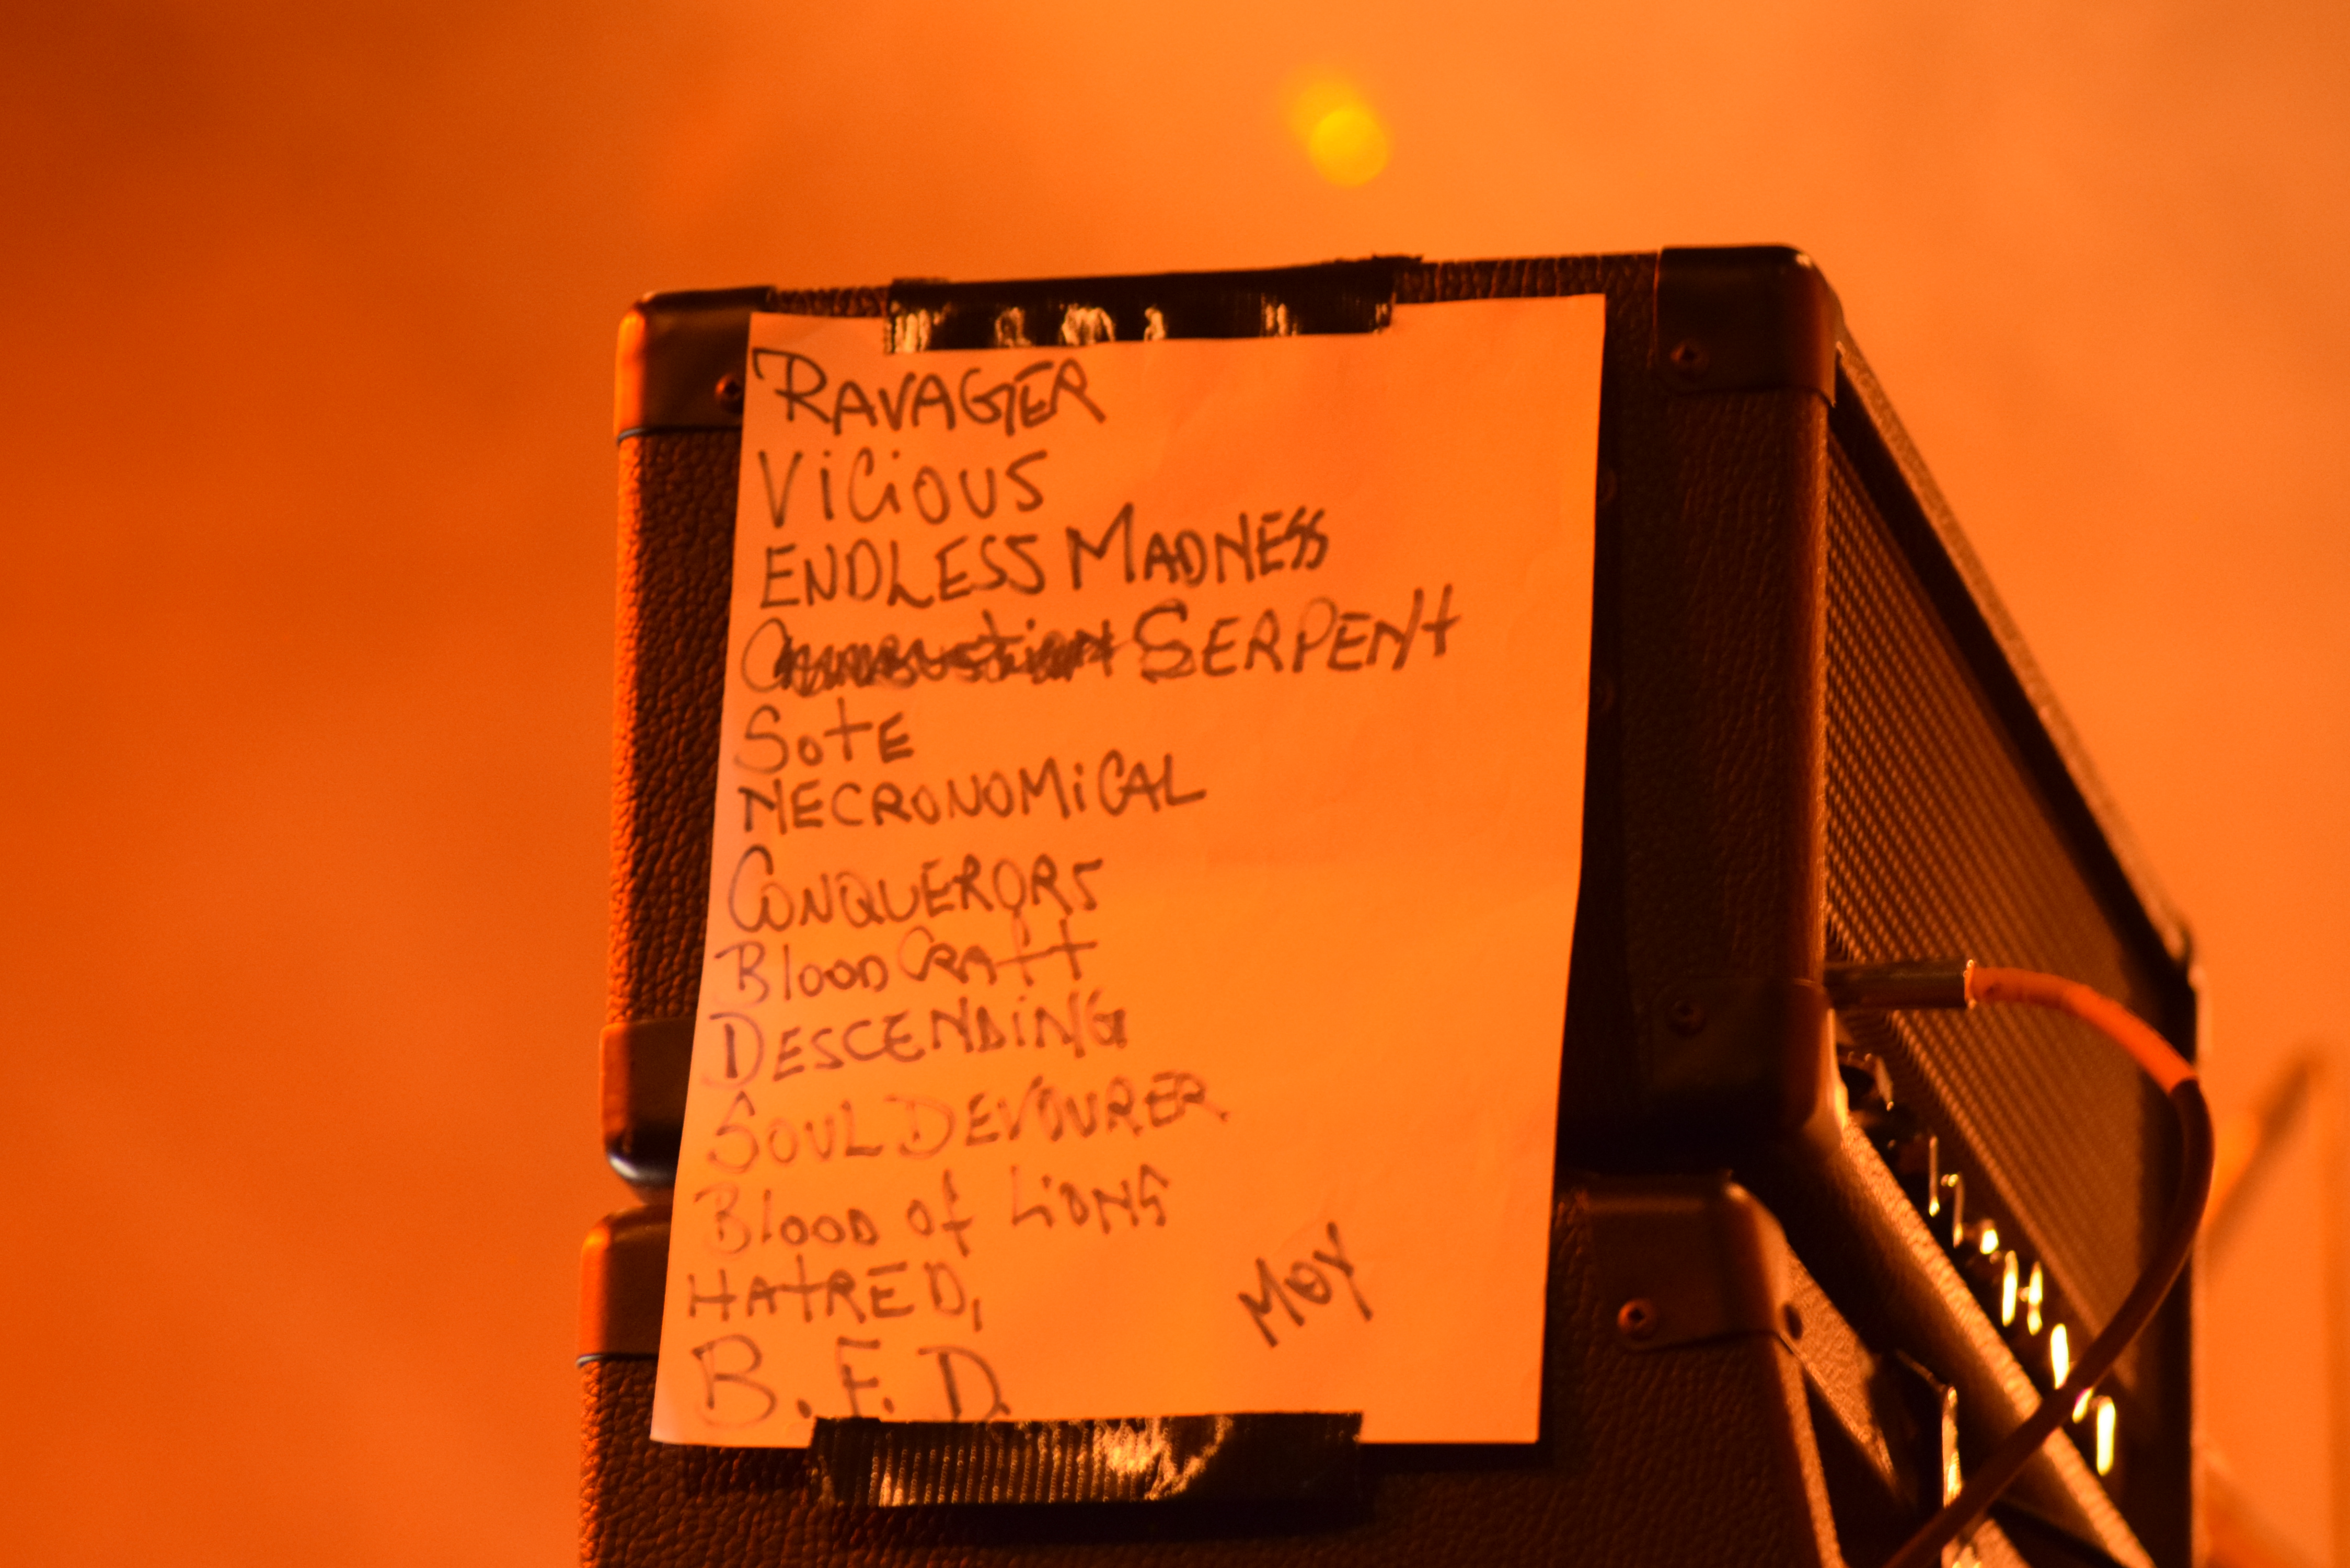 RAVAGER
ViCiOUS
ENDLESS MADNESS
SERPENt
SotE
NECRONOMiCAL
CONQUERORS
BlooD CRAft
DESCENDiNG
SOUL DEVOURER
BlooD of LiONS
HAtRED,
MOY
B.F.D.